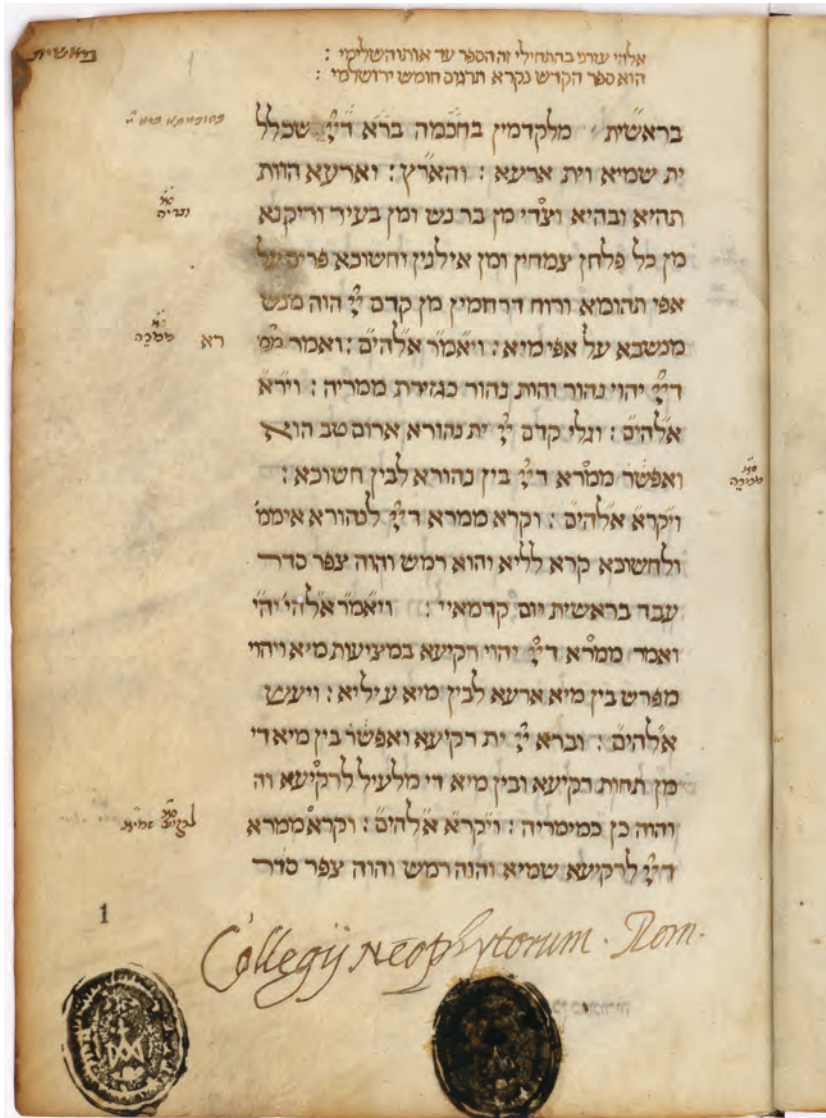 בראשית
אלהי עזרני בהתחילי זה הספר עד אותו השלימי :
הוא ספר הקדש נקרא תרגום חומש ירושלמי :
בראשית מלקדמין בחכמה ברא דייי שכלל
ית שמיא וית ארעא : והארץ : וארעא הוות
תהיא ובהיא וצדי מן בר נש ומן בעיר וריקנא
מן כל פלחן צמחין ומן אילנין וחשוכא פריס על
אפי תהומא ורוח דרחמין מן קדם ייי הוה מנש
מנשבא על אפי מיא : ויאמר אלהים : ואמר ממ
רא
דייי יהוי נהור והות נהור כגזירת ממריה : וירא
אלהים : וגלי קדם ייי ית נהורא ארום טב הוא
ואפשר ממרא דייי בין נהורא לבין חשוכא :
ויקרא אלהים : וקרא ממרא דייי לנהורא איממ
ולחשוכא קרא לליא והוא רמש והוה צפר סדר
עבד בראשית יום קדמאיי : ויאמר אלהי יהי
ואמר ממרא דייי יהוי רקיעא במציעות מיא ויהוי
מפרש בין מיא ארעא לבין מיא עיליא : ויעש
אלהים : וברא ייי ית רקיעא ואפשר בין מיא די
מן תחות רקיעא ובין מיא די מלעיל לרקיעא וה
והוה כן כמימריה : ויקרא אלהים : וקרא ממרא
דייי לרקיעא שמיא והוה רמש והוה צפר סדר
1
Collegij Neophytorum. Rom.